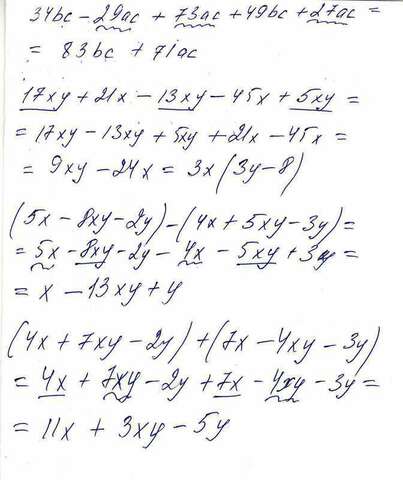 34bc - 29ac + 73ac + 49bc + 27ac =
= 83bc + 71ac
17xy + 21x - 13xy - 45x + 5xy =
= 17xy - 13xy + 5xy + 21x - 45x =
= 9xy - 24x = 3x(3y - 8)
(5x - 8xy - 2y) - (4x + 5xy - 3y) =
= 5x - 8xy - 2y - 4x - 5xy + 3y =
= x - 13xy + y
(4x + 7xy - 2y) + (7x - 4xy - 3y)
= 4x + 7xy - 2y + 7x - 4xy - 3y =
= 11x + 3xy - 5y